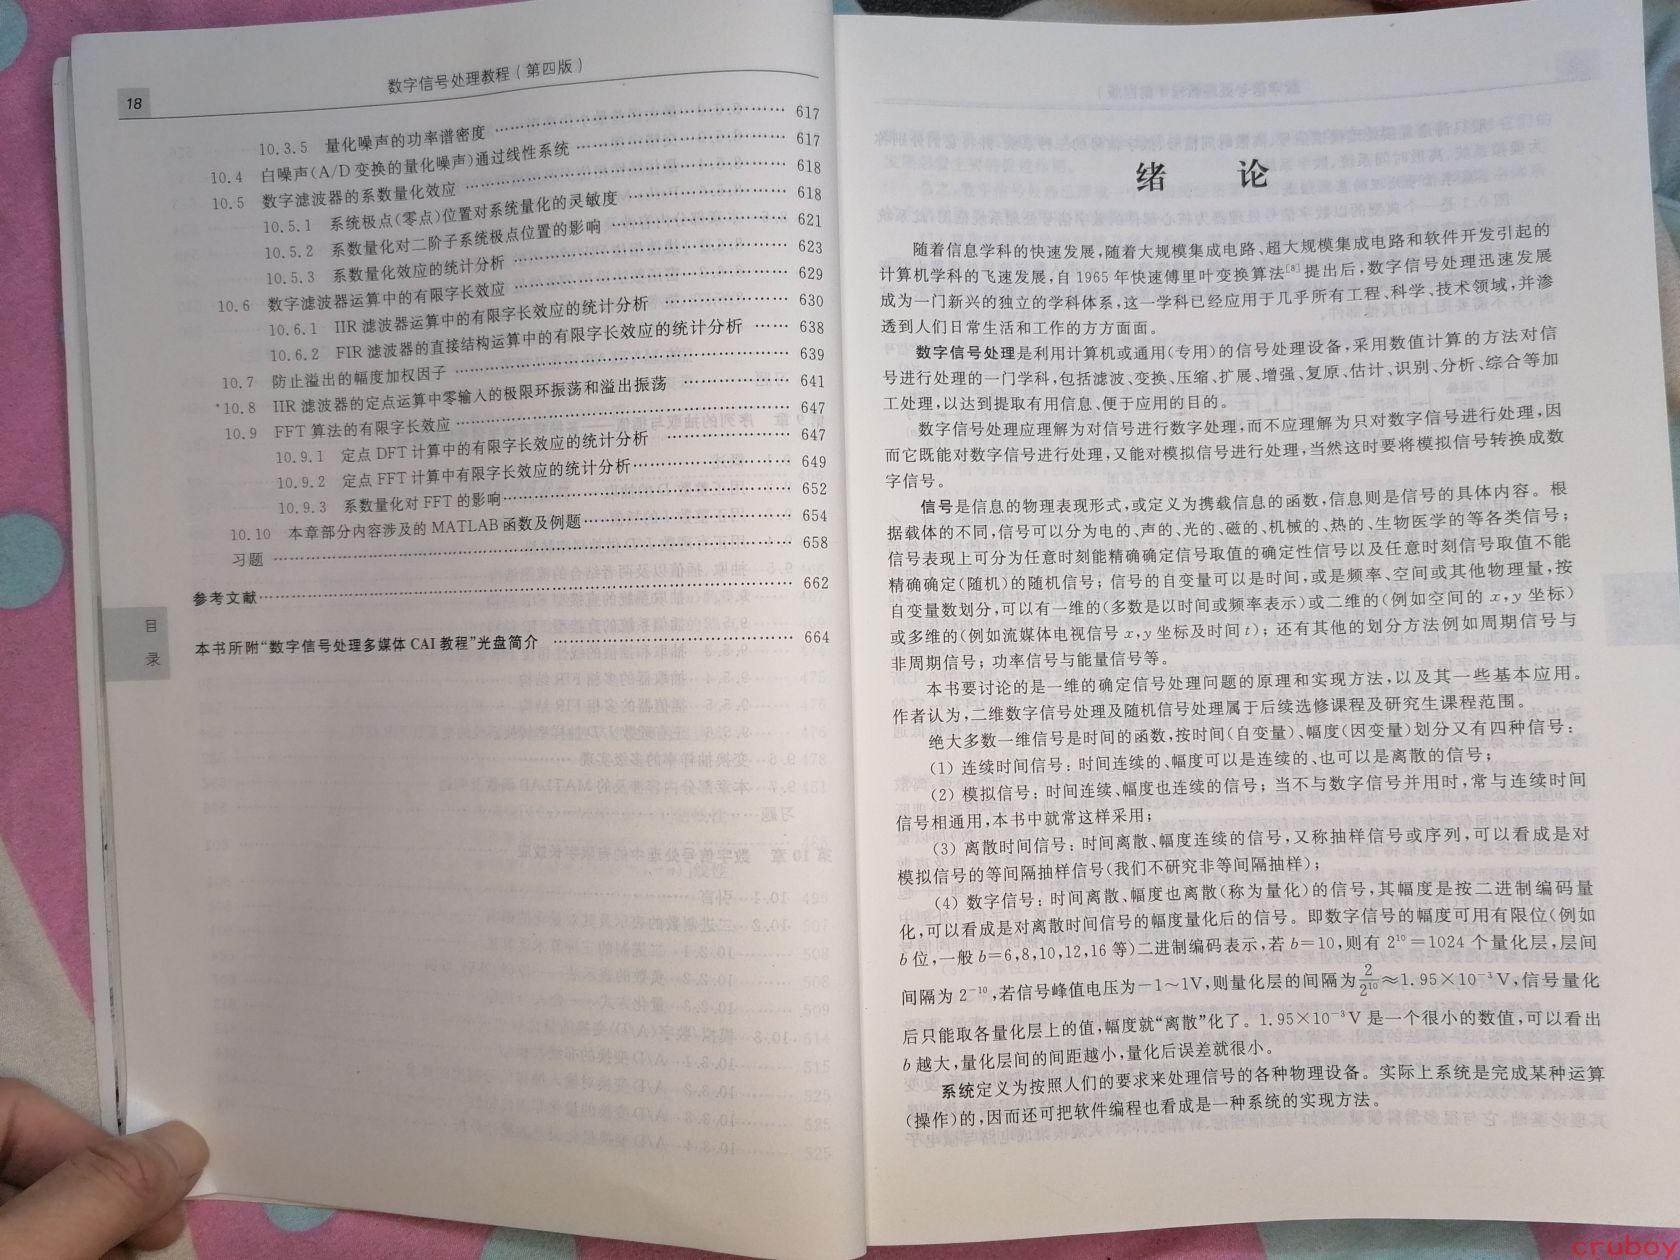 数字信号处理教程(第四版)
18
10.3.5 量化噪声的功率谱密度 …… 617
10.4 白噪声(A/D变换的量化噪声)通过线性系统 …… 617
10.5 数字滤波器的系数量化效应 …… 618
10.5.1 系统极点(零点)位置对系统量化的灵敏度 …… 618
10.5.2 系数量化对二阶子系统极点位置的影响 …… 621
10.5.3 系数量化效应的统计分析 …… 623
10.6 数字滤波器运算中的有限字长效应 …… 629
10.6.1 IIR滤波器运算中的有限字长效应的统计分析 …… 630
10.6.2 FIR滤波器的直接结构运算中的有限字长效应的统计分析 …… 638
10.7 防止溢出的幅度加权因子 …… 639
*10.8 IIR滤波器的定点运算中零输入的极限环振荡和溢出振荡 …… 641
10.9 FFT算法的有限字长效应 …… 647
10.9.1 定点DFT计算中的有限字长效应的统计分析 …… 647
10.9.2 定点FFT计算中有限字长效应的统计分析 …… 649
10.9.3 系数量化对FFT的影响 …… 652
10.10 本章部分内容涉及的MATLAB函数及例题 …… 654
习题 …… 658
参考文献 …… 662
本书所附“数字信号处理多媒体CAI教程”光盘简介 …… 664
目
录
绪 论
随着信息学科的快速发展,随着大规模集成电路、超大规模集成电路和软件开发引起的
计算机学科的飞速发展,自1965年快速傅里叶变换算法[8]提出后,数字信号处理迅速发展
成为一门新兴的独立的学科体系,这一学科已经应用于几乎所有工程、科学、技术领域,并渗
透到人们日常生活和工作的方方面面。
数字信号处理是利用计算机或通用(专用)的信号处理设备,采用数值计算的方法对信
号进行处理的一门学科,包括滤波、变换、压缩、扩展、增强、复原、估计、识别、分析、综合等加
工处理,以达到提取有用信息、便于应用的目的。
数字信号处理应理解为对信号进行数字处理,而不应理解为只对数字信号进行处理,因
而它既能对数字信号进行处理,又能对模拟信号进行处理,当然这时要将模拟信号转换成数
字信号。
信号是信息的物理表现形式,或定义为携载信息的函数,信息则是信号的具体内容。根
据载体的不同,信号可以分为电的、声的、光的、磁的、机械的、热的、生物医学的等各类信号;
信号表现上可分为任意时刻能精确确定信号取值的确定性信号以及任意时刻信号取值不能
精确确定(随机)的随机信号;信号的自变量可以是时间,或是频率、空间或其他物理量,按
自变量数划分,可以有一维的(多数是以时间或频率表示)或二维的(例如空间的x,y坐标)
或多维的(例如流媒体电视信号x,y坐标及时间t);还有其他的划分方法例如周期信号与
非周期信号;功率信号与能量信号等。
本书要讨论的是一维的确定信号处理问题的原理和实现方法,以及其一些基本应用。
作者认为,二维数字信号处理及随机信号处理属于后续选修课程及研究生课程范围。
绝大多数一维信号是时间的函数,按时间(自变量)、幅度(因变量)划分又有四种信号:
(1) 连续时间信号:时间连续的、幅度可以是连续的、也可以是离散的信号;
(2) 模拟信号:时间连续、幅度也连续的信号;当不与数字信号并用时,常与连续时间
信号相通用,本书中就常这样采用;
(3) 离散时间信号:时间离散、幅度连续的信号,又称抽样信号或序列,可以看成是对
模拟信号的等间隔抽样信号(我们不研究非等间隔抽样);
(4) 数字信号:时间离散、幅度也离散(称为量化)的信号,其幅度是按二进制编码量
化,可以看成是对离散时间信号的幅度量化后的信号。即数字信号的幅度可用有限位(例如
b位,一般b=6,8,10,12,16等)二进制编码表示,若b=10,则有2¹⁰=1024个量化层,层间
间隔为2⁻¹⁰,若信号峰值电压为−1~1V,则量化层的间隔为2/2¹⁰≈1.95×10⁻³V,信号量化
后只能取各量化层上的值,幅度就“离散”化了。1.95×10⁻³V是一个很小的数值,可以看出
b越大,量化层间的间距越小,量化后误差就很小。
系统定义为按照人们的要求来处理信号的各种物理设备。实际上系统是完成某种运算
(操作)的,因而还可把软件编程也看成是一种系统的实现方法。
cruboy